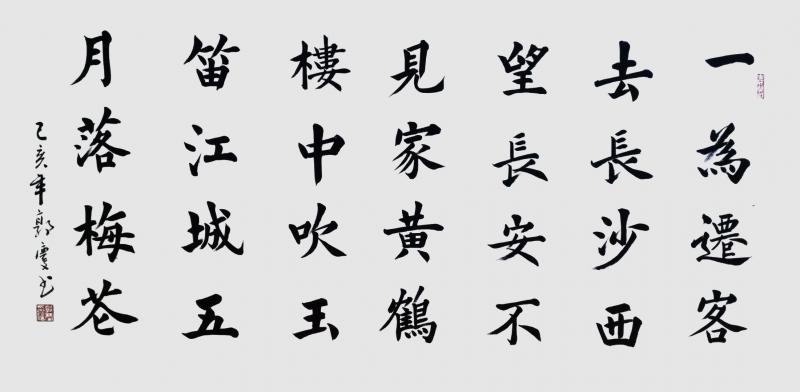 一為遷客
去長沙西
望長安不
見家黄鶴
樓中吹玉
笛江城五
月落梅花
己亥年郭书